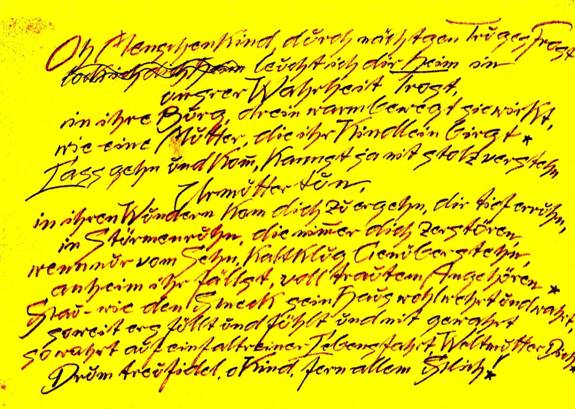 Oh Menschenkind, dürch nächtgen Trüges Frost
leücht ich dir heim in
ünsrer Wahrheit Trost,
in ihre Bürg, drein warm bewegt sie wirkt,
wie eine Mütter, die ihr Kindlein birgt *
Lass gehn ünd kom̄, kannst ja nit stolz verstehn
Urmütter tün,
in ihren Wündern kom dich zü ergehn, dir tief errühn,
in Stürmenrühn, die nimer dich zerstören
wenn nür vom Sehn, kaltklüg Genüberstehn,
anheim ihr fällst, voll traütem Angehören *
Schaü- wie den Schneck sein Haüs wohl nährt ünd wahrt,
soweit ers füllt ünd fühlt ünd mit gewahrt
so wahrt aüf einfaltreiner Lebensfahrt Weltmütter Dich
Drüm treüfidel, o Kind, fern allem Stich!